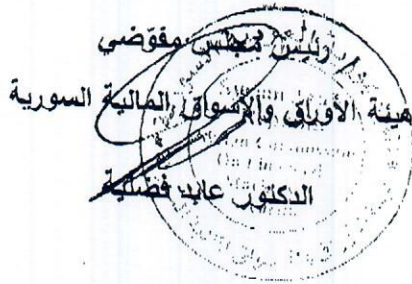 رئيس مجلس مفوّضي
هيئة الأوراق والأسواق المالية السورية
الدكتور عابد فضلية